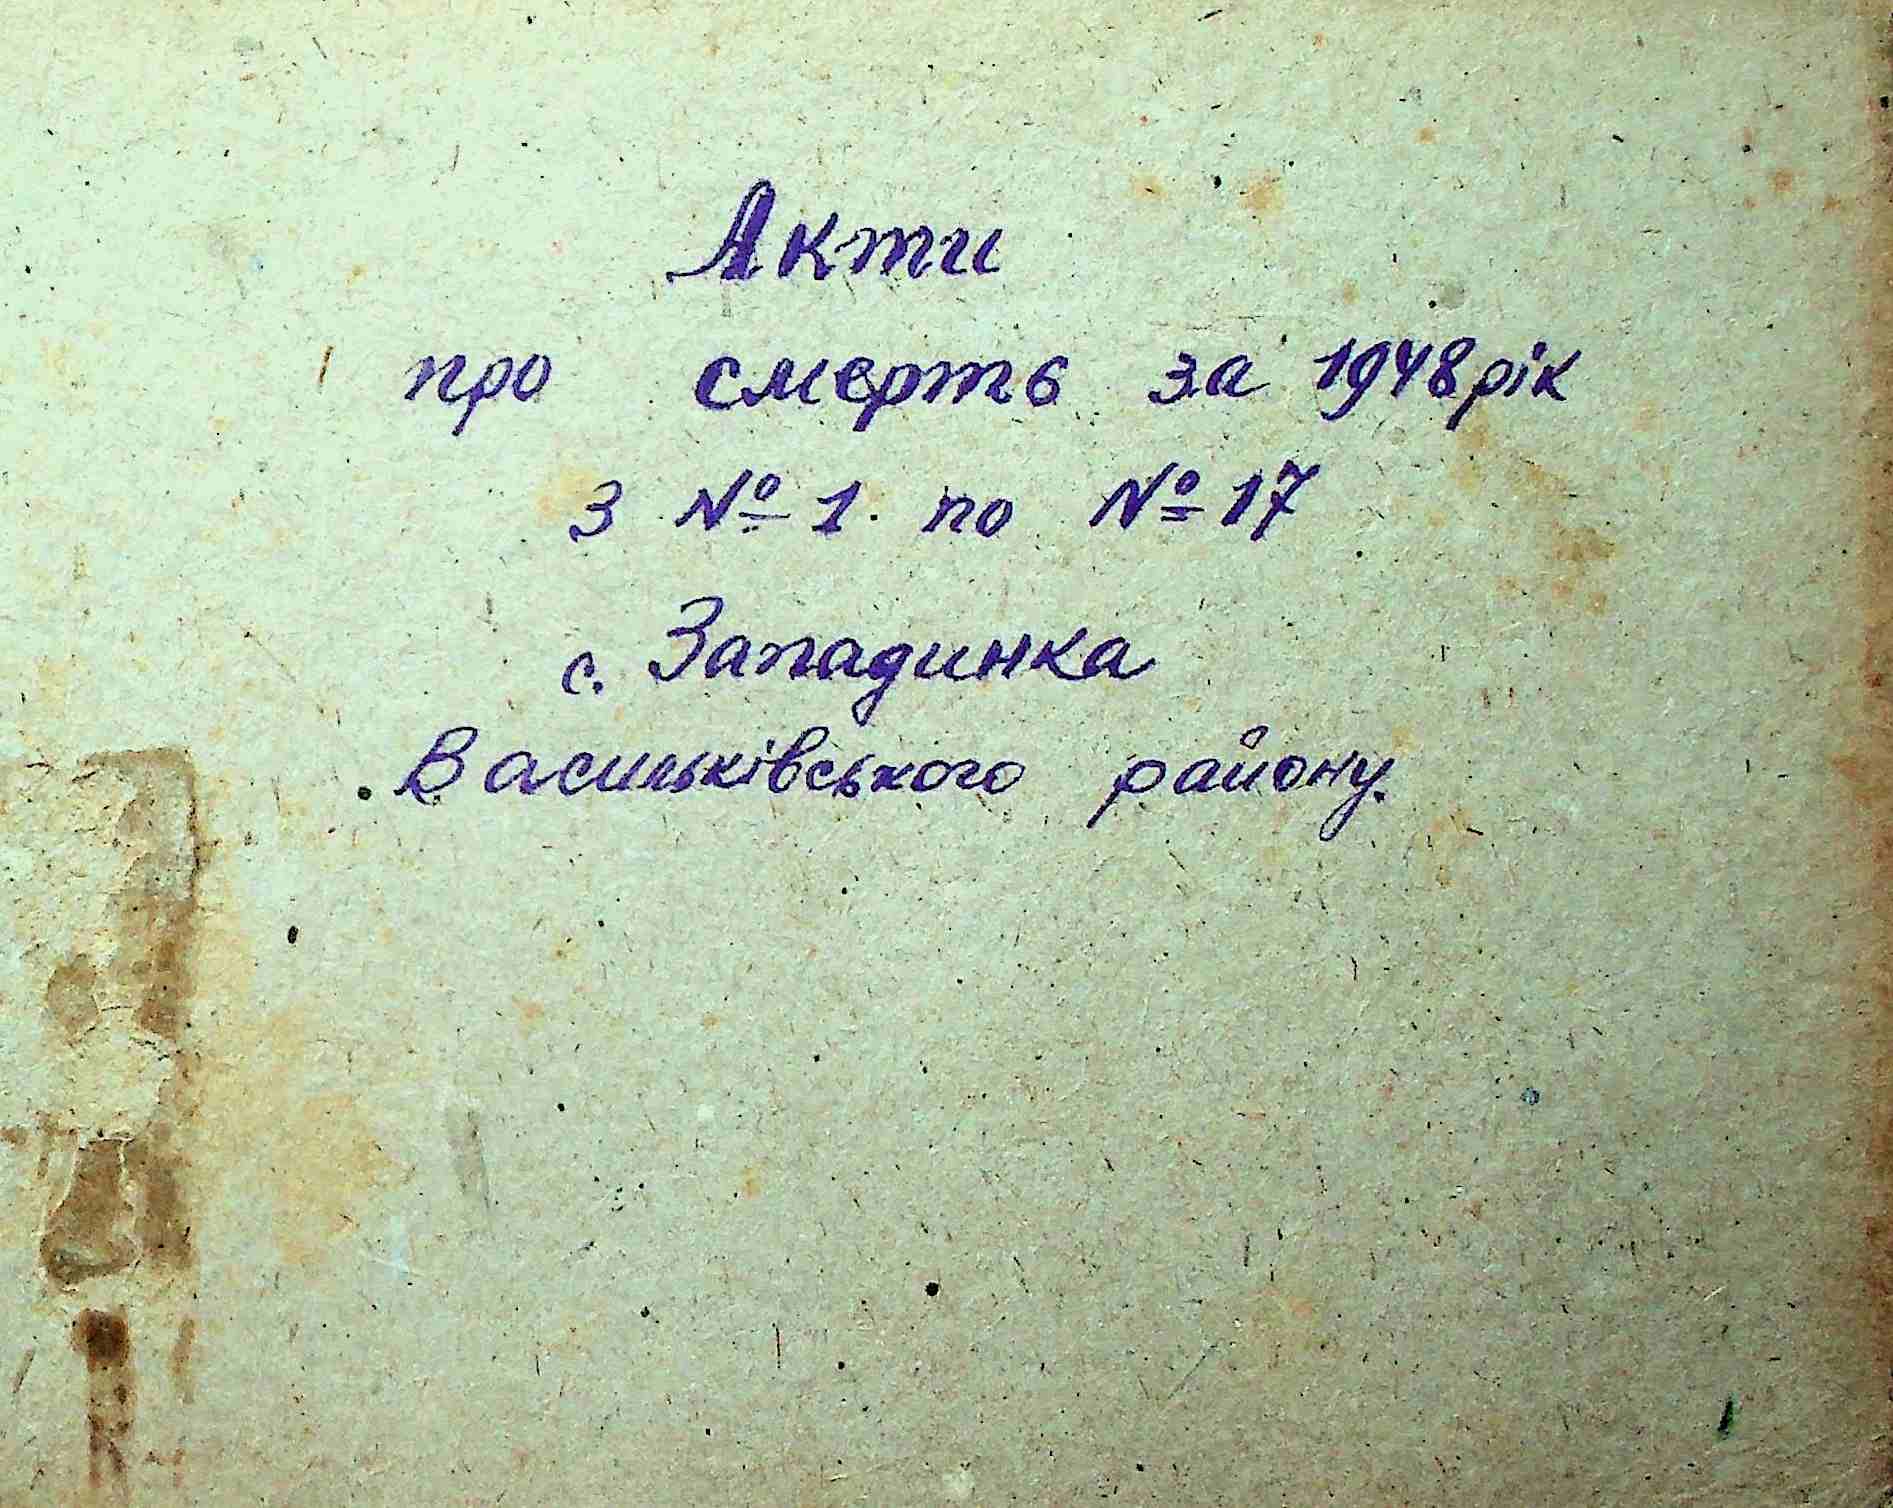 Акти
про смерть за 1948 рік
з № 1 по № 17
с. Западинка
Васильківського району.